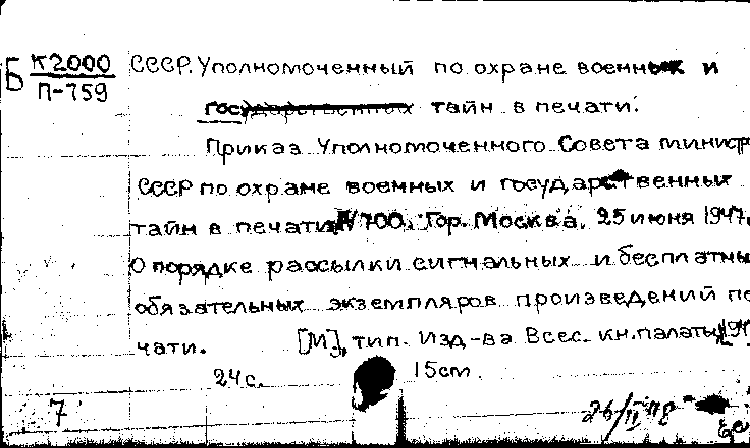 Б К2000 СССР. Уполномоченный по охране военных и
П-759 государственных тайн в печати.
Приказ Уполномоченного Совета минист
СССР по охране военных и государственных
тайн в печати № 700. Гор. Москва. 25 июня 1947.
О порядке рассылки сигнальных и бесплатны
обязательных экземпляров произведений пе
чати. [М], тип. Изд-ва Всес. кн. палаты,
24 с. 15 см.
7 26/II 48